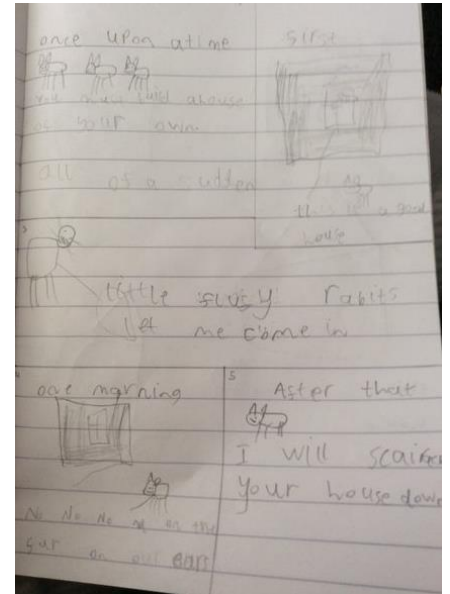 once upon atime
you must buld a house
of your own
all of a sutten
first
this is a good
house
3
little flusy rabits
let me come in
one morning
No No No not on the
fur on our ears
5
After that
I will scairen
your house down